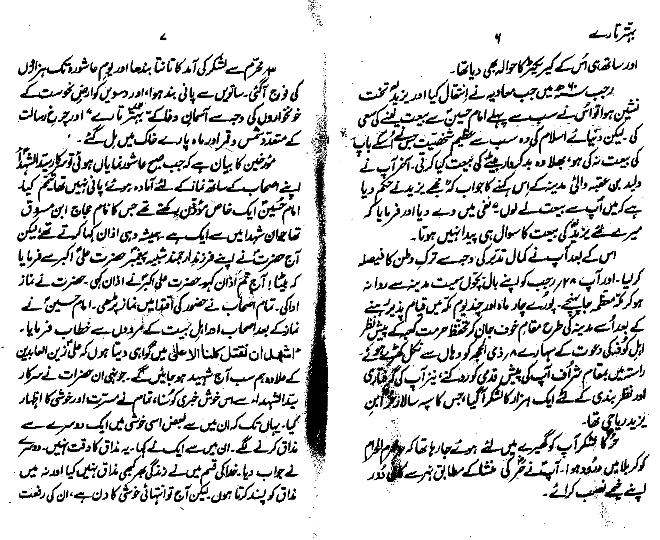 بہتر تارے ۶
اور ساتھ ہی اس کے کیریکٹر کا حوالہ بھی دیا تھا۔
رجب ۶۰ھ میں جب معاویہ نے انتقال کیا اور یزید تخت
نشین ہوا تو اس نے سب سے پہلے امام حسینؑ سے بیعت لینے کی سعی
کی۔ لیکن دنیائے اسلام کی وہ سب سے عظیم شخصیت جس نے اس کے باپ
کی بیعت نہ کی ہو، بھلا وہ بدکردار بیٹے کی بیعت کیا کرتی۔ آخر آپ نے
ولید بن عقبہ والیٔ مدینہ کے اس کہنے کا جواب کہ مجھے یزید نے حکم دیا
ہے کہ میں آپ سے بیعت لے لوں، نفی میں دے دیا اور فرمایا کہ
میرے لئے یزید کی بیعت کا سوال ہی پیدا نہیں ہوتا۔
اس کے بعد آپ نے کمال تدبر کی وجہ سے ترک وطن کا فیصلہ
کرلیا۔ اور آپ ۲۸ رجب کو اپنے بال بچوں سمیت مدینہ سے روانہ
ہو کر مکہ معظمہ جا پہنچے۔ پورے چار ماہ اور چند یوم مکہ میں قیام پذیر رہنے
کے بعد اُسے مدینہ کی طرح مقام خوف جان کر تحفظ حرمت کعبہ کے پیش نظر
اہل کوفہ کی دعوت کے سہارے ۸ ذی الحجہ کو وہاں سے نکل کھڑے ہوئے۔
راستہ میں بمقام شراف آپ کی پیش قدمی کو روکنے، نیز آپ کی گرفتاری
اور نظر بندی کے لئے ایک ہزار کا لشکر آگیا، جس کا سپہ سالار حر ابن
یزید ریاحی تھا۔
حر کا لشکر آپ کو گھیرے میں لئے ہوئے جا رہا تھا کہ محرم الحرام
کو کربلا میں ورود ہوا۔ آپ نے حر کی منشا کے مطابق نہر سے کافی دور
اپنے خیمے نصب کرائے۔
۷
۳ محرم سے لشکر کی آمد کا تانتا بندھا اور یوم عاشورہ تک ہزاروں
کی فوج آگئی۔ ساتویں سے پانی بند ہوا، اور دسویں کو ارض نحوست کے
خونخواروں کی وجہ سے آسمان وفا کے "بہتر تارے" اور چرخ رسالت
کے متعدد شمس و قمر اور ماہ پارے خاک میں مل گئے۔
مورخین کا بیان ہے کہ جب صبح عاشور نمایاں ہوئی تو سرکار سید الشہداؑ
اپنے اصحاب کے ساتھ نماز کے لئے آمادہ ہوئے، پانی نہیں تھا، تیمم کیا۔
امام حسینؑ ایک خاص مؤذن رکھتے تھے جس کا نام حجاج ابن مسروق
تھا جو ان شہدا میں سے ایک ہے۔ ہمیشہ وہی اذان کہا کرتے تھے، لیکن
آج حضرت نے اپنے فرزند ارجمند شبیہ پیغمبر حضرت علی اکبرؑ سے فرمایا
کہ بیٹا! آج تم اذان کہو حضرت علی اکبرؑ نے اذان کہی۔ حضرت نے نماز
ادا کی۔ تمام اصحاب نے حضور کی اقتدا میں نماز پڑھی۔ امام حسینؑ نے
نماز کے بعد اصحاب اور اہل بیت کے فردوں سے خطاب فرمایا۔
"اشہد ان نقتل کلنا الا علی" میں گواہی دیتا ہوں کہ علی زین العابدین
کے علاوہ ہم سب آج شہید ہو جائیں گے۔ جونہی ان حضرات نے سرکار
سید الشہداء سے اس خوش خبری کو سنا، تمام نے مسرت اور خوشی کا اظہار
کیا۔ یہاں تک کہ ان میں سے بعض اسی خوشی میں ایک دوسرے سے
مذاق کرنے لگے۔ ان میں سے ایک نے کہا۔ یہ مذاق کا وقت نہیں۔ دوسرے
نے جواب دیا۔ خدا کی قسم میں نے زندگی بھر کبھی مذاق نہیں کیا اور نہ میں
مذاق کو پسند کرتا ہوں۔ لیکن آج تو انتہائی خوشی کا دن ہے، ان کی رفعت